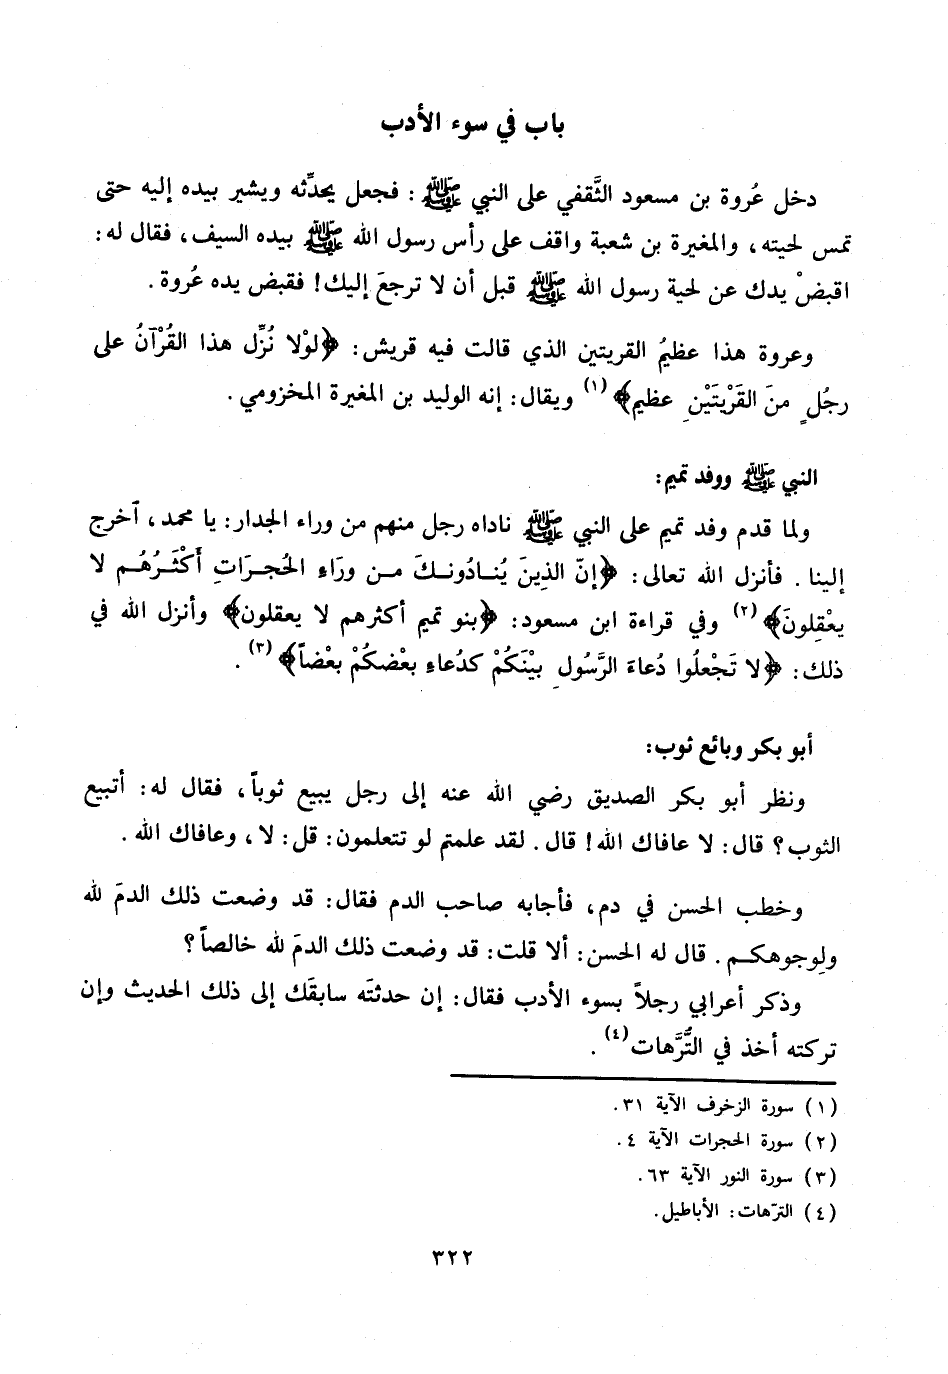 باب في سوء الأدب
دخل عُروة بن مسعود الثَّقفي على النبي ﷺ : فجعل يحدِّثه ويشير بيده إليه حتى
تمس لحيته، والمغيرة بن شعبة واقف على رأس رسول الله ﷺ بيده السيف، فقال له:
اقبضْ يدك عن لحية رسول الله ﷺ قبل أن لا ترجعَ إليك! فقبض يده عُروة.
وعروة هذا عظيمُ القريتين الذي قالت فيه قريش: ﴿لوْلا نُزِّل هذا القُرْآنُ على
رجُلٍ منَ القَرْيتَيْنِ عظيم﴾ (١) ويقال: إنه الوليد بن المغيرة المخزومي.
النبي ﷺ ووفد تميم:
ولما قدم وفد تميم على النبي ﷺ ناداه رجل منهم من وراء الجدار: يا محمد، اخرج
إلينا. فأنزل الله تعالى: ﴿إنّ الذِينَ يُنادُونكَ من ورَاءِ الحُجرَاتِ أكْثَرُهُم لا
يعْقِلونَ﴾ (٢) وفي قراءة ابن مسعود: ﴿بنو تميم أكثرهم لا يعقلون﴾ وأنزل الله في
ذلك: ﴿لا تَجْعلُوا دُعاءَ الرَّسُولِ بيْنَكُمْ كدُعاءِ بعْضكُمْ بعْضاً﴾ (٣).
أبو بكر وبائع ثوب:
ونظر أبو بكر الصديق رضي الله عنه إلى رجل يبيع ثوباً، فقال له: أتبيع
الثوب؟ قال: لا عافاك الله! قال. لقد علمتم لو تتعلمون: قل: لا، وعافاك الله.
وخطب الحسن في دم، فأجابه صاحب الدم فقال: قد وضعت ذلك الدمَ لله
ولِوجوهكم. قال له الحسن: ألا قلت: قد وضعت ذلك الدمَ لله خالصاً؟
وذكر أعرابي رجلاً بسوء الأدب فقال: إن حدثتَه سابقَك إلى ذلك الحديث وإن
تركته أخذ في التُّرَّهات (٤).
(١) سورة الزخرف الآية ٣١.
(٢) سورة الحجرات الآية ٤.
(٣) سورة النور الآية ٦٣.
(٤) الترّهات: الأباطيل.
٣٢٢